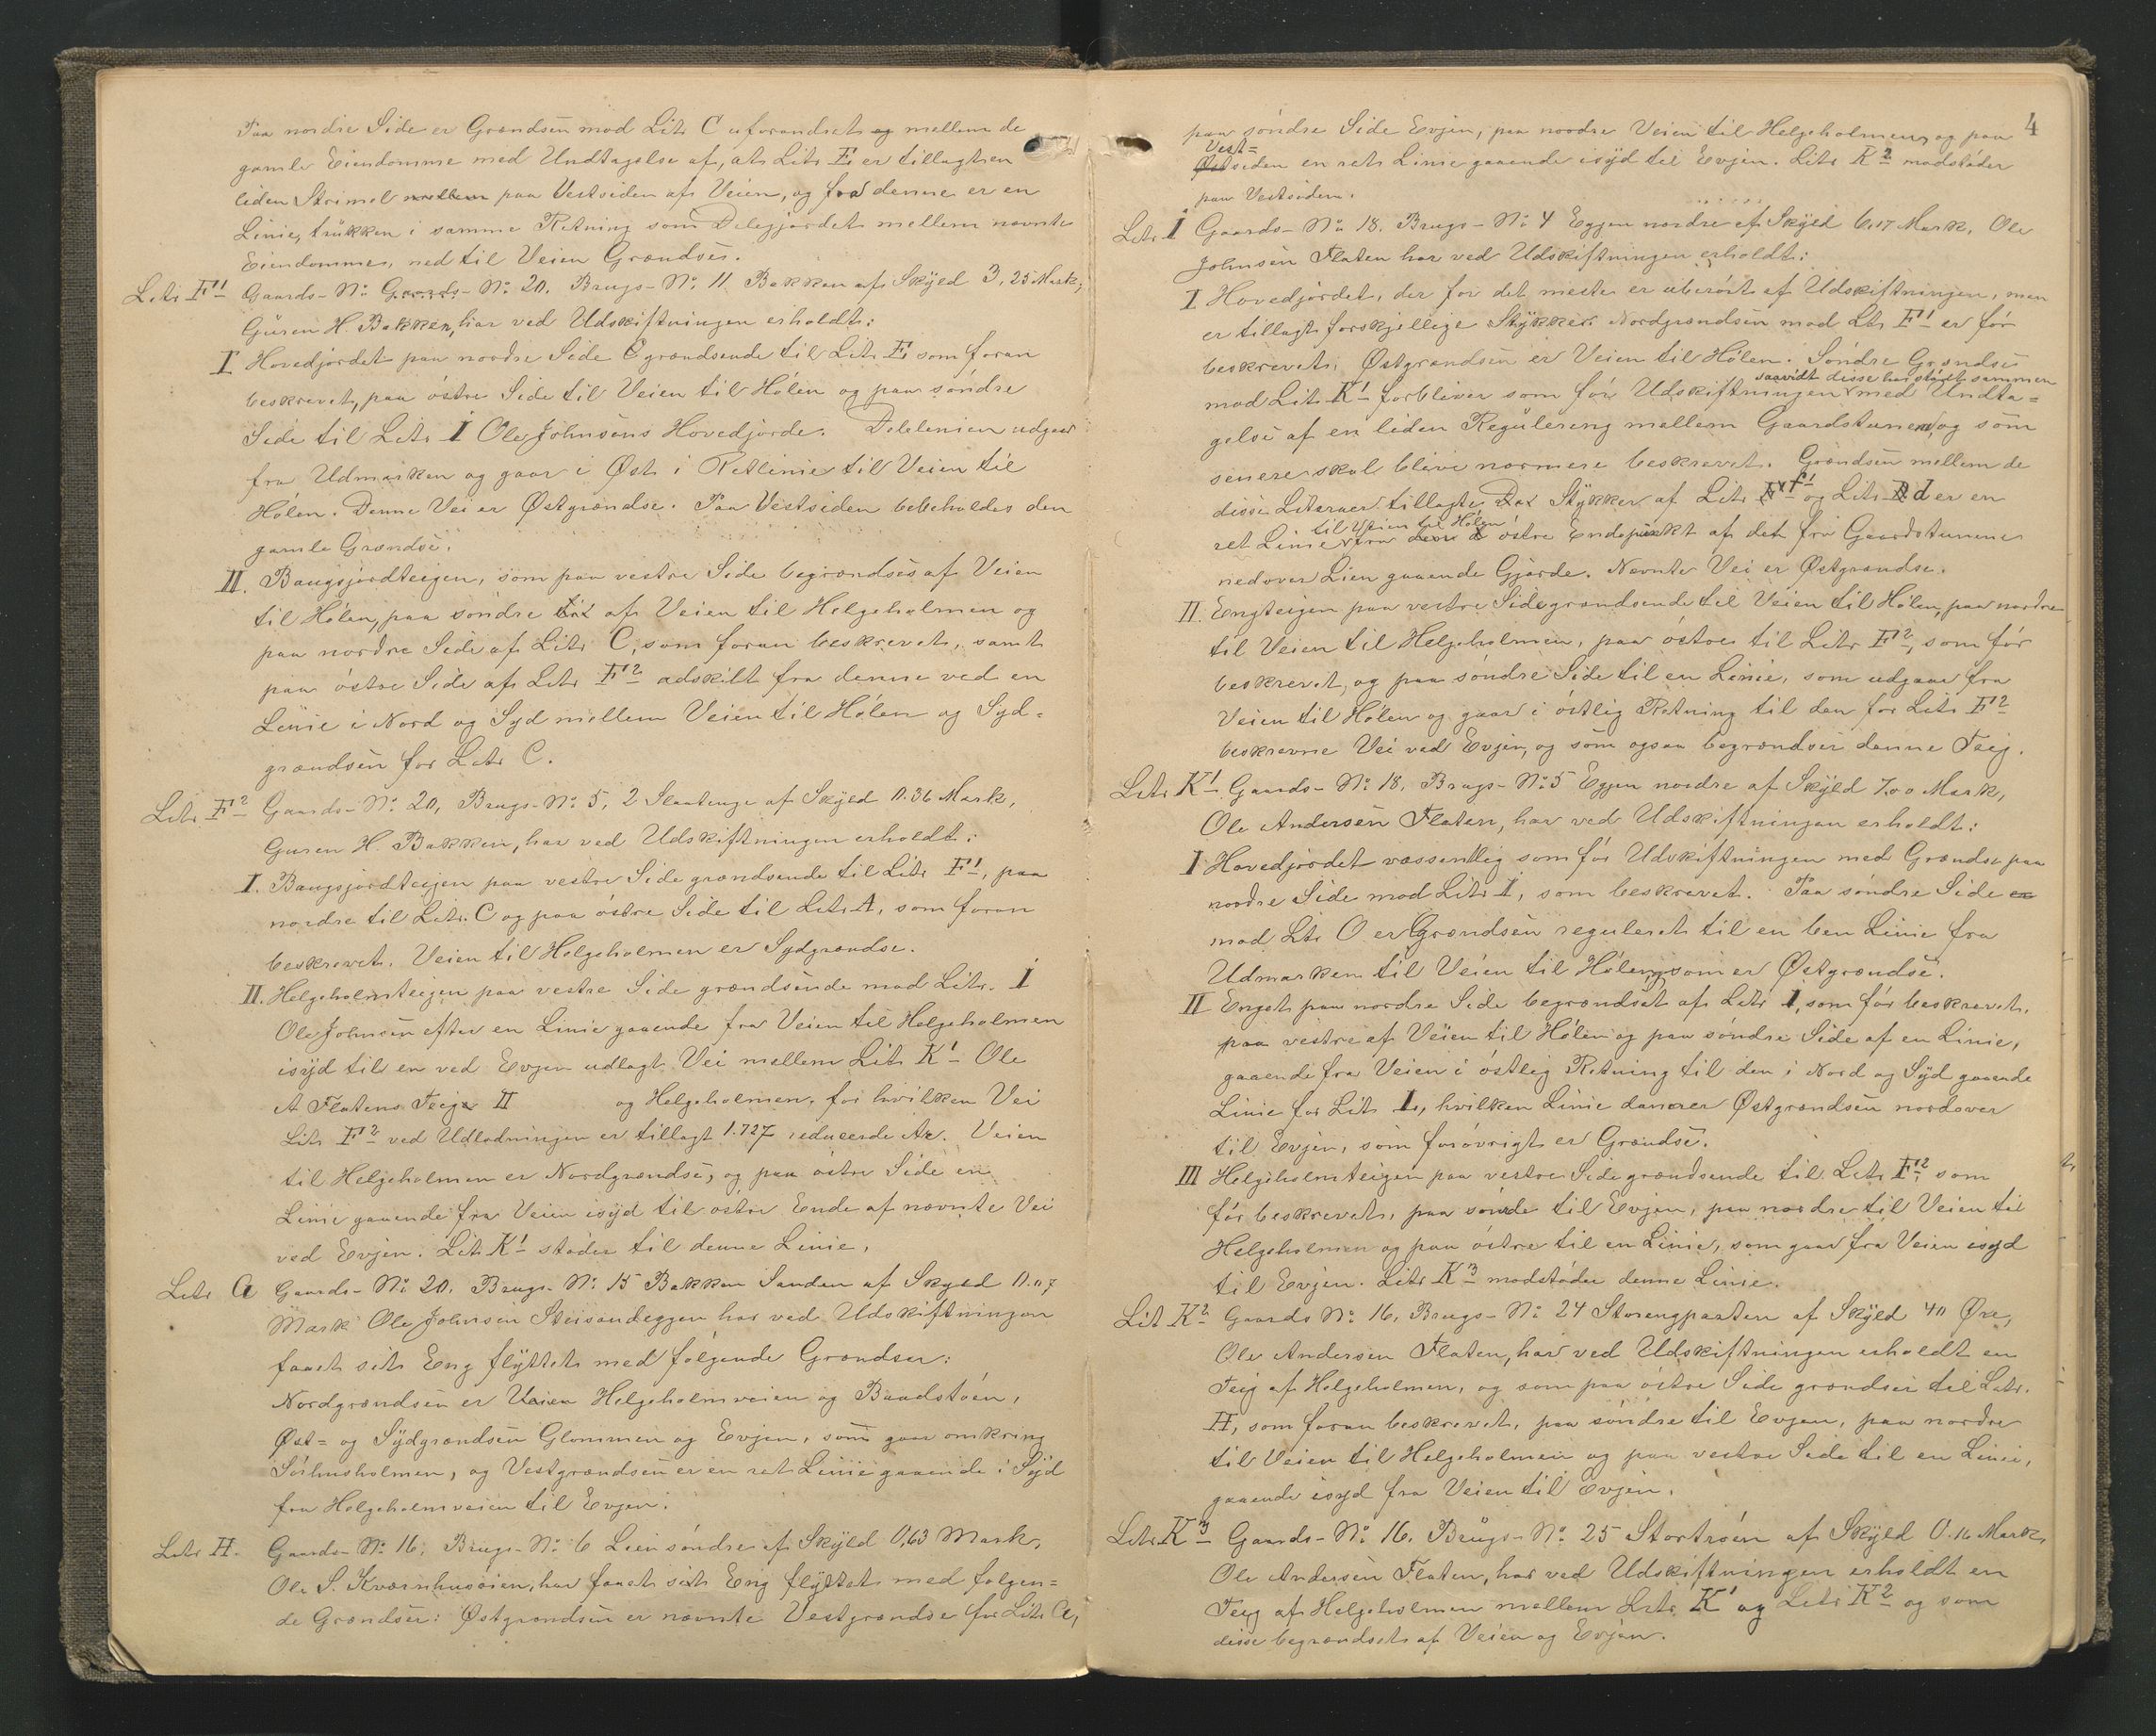 Paa nordre Side er Grændsen mod Litr C uforandret og mellem de
gamle Eiendomme med Undtagelse af, at Litr E er tillagt en
liden Strimel mellem paa Vestsiden af Veien, og fra denne er en
Linie, trükken i samme Retning som Delegjærdet mellem nævnte
Eiendomme, ned til Veien Grændse.
Litr F¹ Gaards-No Gaards-No 20. Brugs-No 11 Bakken af Skyld 3,25 Mark,
Guren H. Bakken, har ved Udskiftningen erholdt:
I Hovedjordet paa nordre Side grændsende til Litr E som foran
beskrevet, paa östre Side til Veien til Hölen og paa söndre
Side til Litr I Ole Johnsens Hovedjorde. Delelinien udgaar
fra Udmarken og gaar i Øst i Retlinie til Veien til
Hölen. Denne Vei er Østgrændse. Paa Vestsiden bebeholdes den
gamle Grændse.
II. Baugsjordteigen, som paa vestre Side begrændses af Veien
til Hölen, paa söndre til af Veien til Helgeholmen og
paa nordre Side af Litr C, som foran beskrevet, samt
paa östre Side af Litr F² adskilt fra denne ved en
Linie i Nord og Syd mellem Veien til Hölen og Syd-
grændsen for Litr C.
Litr F² Gaards-No 20, Brugs-No 5, 2 Slaatenge af Skyld 0.36 Mark,
Guren H. Bakken, har ved Udskiftningen erholdt:
I. Baugsjordteigen paa vestre Side grændsende til Litr F¹, paa
nordre til Litr. C og paa östre Side til Litr A, som foran
beskrevet. Veien til Helgeholmen er Sydgrændse.
II. Helgeholmteigen paa vestre Side grændsende mod Litr. I
Ole Johnsen efter en Linie gaaende fra Veien til Helgeholmen
isyd til en ved Evjen udlagt Vei mellem Litr K¹ Ole
A Flatens Teig II og Helgeholmen, for hvilken Vei
Litr F² ved Udlodningen er tillagt 1.727 reducerde Ar. Veien
til Helgeholmen er Nordgrændse, og paa östre Side en
Linie gaaende fra Veien isyd til östre Ende af nævnte Vei
ved Evjen. Litr K¹ stöder til denne Linie.
Litr G Gaards-No 20. Brugs-No 15 Bakken Sanden af Skyld 0.07
Mark Ole Johnsen Steisandeggen har ved Udskiftningen
faaet sit Eng flyttet med fölgende Grændser:
Nordgrændsen er Veien Helgeholmveien og Baadstöen,
Øst- og Sydgrændsen Glommen og Evjen, som gaar omkring
Sörhusholmen, og Vestgrændsen er en ret Linie gaaende i Syd
fra Helgeholmveien til Evjen.
Litr H. Gaards-No 16, Brugs-No 6 Lien söndre af Skyld 0,63 Mark,
Ole S. Kværnhusöien, har faaet sit Eng flyttet med folgen-
de Grændser: Østgrændsen er nævnte Vestgrændse for Litr G,
4
paa söndre Side Evjen, paa nordre Veien til Helgeholmen, og paa
Vest-
Østsiden en ret Linie gaaende isyd til Evjen. Litr K² modstöder
paa Vestsiden.
Litr I Gaards-No 18. Brugs-No 4 Eggen nordre af Skyld 6.17 Mark, Ole
Johnsen Flaten har ved Udskiftningen erholdt:
I Hovedjordet, der for det meste er uberört af Udskiftningen, men
er tillagt forskjellige Stykker. Nordgrændsen mod Litr F¹ er för
beskrevet. Østgrændsen er Veien til Hölen. Söndre Grændse
saavidt disse har stödt sammen
mod Litr K¹ forbliver som för Udskiftningen med Undta-
gelse af en liden Regulering mellem Gaardstunene, og som
senere skal blive nærmere beskrevet. Grændsen mellem de
disse Literaer tillagte Stykker af Litr f¹ og Litr d er en
til Veien til Hölen
ret Linie fra östre Endepunkt af det fra Gaardstunene
nedover Lien gaaende Gjærde. Nævnte Vei er Østgrændse.
II. Engteigen paa vestre Side grændsende til Veien til Hölen, paa nordre
til Veien til Helgeholmen, paa östre til Litr F², som för
beskrevet, og paa söndre Side til en Linie, som udgaar fra
Veien til Hölen og gaar i östlig Retning til den for Litr F²
beskrevne Vei ved Evjen, og som ogsaa begrændser denne Teig.
Litr K¹ Gaards-No 18, Brugs-No 5 Eggen nordre af Skyld 7.00 Mark,
Ole Andersen Flaten, har ved Udskiftningen erholdt:
I Hovedjordet væssentlig som för Udskiftningen med Grændse paa
nordre Side mod Litr I, som beskrevet. Paa söndre Side er
mod Litr O er Grændsen reguleret til en ben Linie fra
Udmarken til Veien til Hölen, som er Østgrændse.
II Enget paa nordre Side begrændset af Litr I, som för beskrevet,
paa vestre af Veien til Hölen og paa söndre Side af en Linie,
gaaende fra Veien i östlig Retning til den i Nord og Syd gaaende
Linie for Litr L, hvilken Linie danner Østgrændsen nordover
til Evjen, som forövrigt er Grændse.
III Helgeholmteigen paa vestre Side grændsende til Litr F² som
för beskrevet, paa sönde til Evjen, paa nordre til Veien til
Helgeholmen og paa östre til en Linie, som gaar fra Veien isyd
til Evjen. Litr K³ modstöder denne Linie.
Lit K² Gaards No 16, Brugs-No 24 Storengparten af Skyld 40 Øre,
Ole Andersen Flaten, har ved Udskiftningen erholdt en
Teig af Helgeholmen, og som paa östre Side grændser til Litr.
H, som foran beskrevet, paa söndre til Evjen, paa nordre
til Veien til Helgeholmen og paa vestre Side til en Linie,
gaaende isyd fra Veien til Evjen.
Litr K³ Gaards-No 16. Brugs-No 25 Stortröen af Skyld 0.16 Mark,
Ole Andersen Flaten, har ved Udskiftningen erholdt en
Teig af Helgeholmen mellem Litr K¹ og Litr K² og som
disse begrændset af Veien og Evjen.